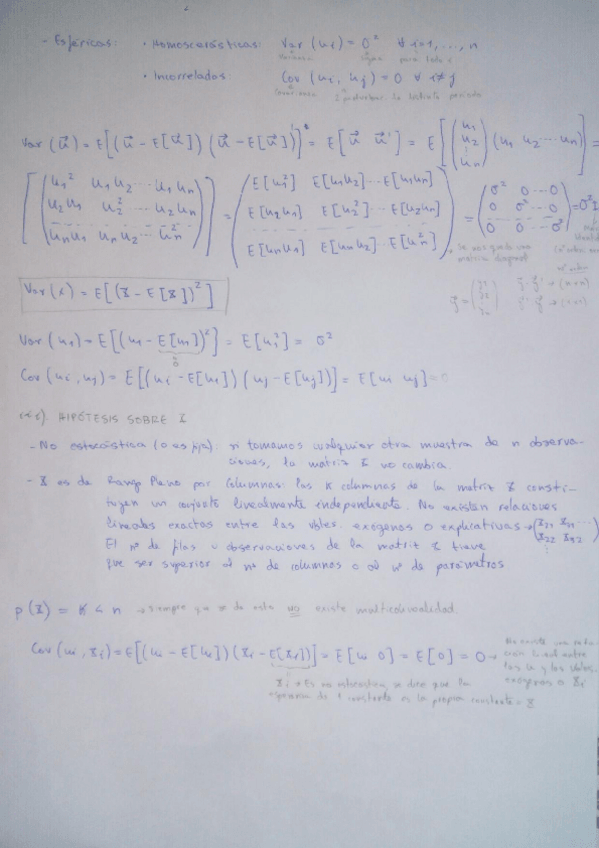 - Esféricas: · Homoscedásticas: Var (ui) = σ² ∀ i=1, ..., n
Varianza para todo i
· Incorrelados: Cov (ui, uj) = 0 ∀ i≠j
Covarianza
Var (u⃗) = E[(u⃗ - E[u⃗]) (u⃗ - E[u⃗])]' = E[u⃗ u⃗'] = E[(u1 u2 ⋮ un) (u1 u2 ... un)] =
[(u1² u1u2 ... u1un
u2u1 u2² ... u2un
unu1 unu2 ... un²)] = (E[u1²] E[u1u2] ... E[u1un]
E[u2u1] E[u2²] ... E[u2un]
E[unu1] E[unu2] ... E[un²]) = (σ² 0 ... 0
0 σ² ... 0
0 0 ... σ²) = σ²I
Se nos queda una matriz diagonal
Var (x) = E[(X - E[X])²]
Var (u1) = E[(u1 - E[u1])²] = E[u1²] = σ²
0
Cov (ui, uj) = E[(ui - E[ui]) (uj - E[uj])] = E[ui uj] = 0
HIPÓTESIS SOBRE X
- No estocástica (o es fija): si tomamos cualquier otra muestra de n observa-
ciones, la matriz X no cambia.
- X es de Rango Pleno por Columnas: las K columnas de la matriz X consti-
tuyen un conjunto linealmente independiente. No existen relaciones
lineales exactas entre las vbles. exógenas o explicativas →
El nº de filas u observaciones de la matriz X tiene
que ser superior al nº de columnas o al nº de parámetros
ρ(X) = K < n → siempre que se de esto no existe multicolinealidad.
Cov (ui, Xi) = E[(ui - E[ui]) (Xi - E[Xi])] = E[ui 0] = E[0] = 0 → No existe una relación lineal entre las u y las vbles. exógenas o Xi
Xi → Es no estocástica, se dice que la
esperanza de 1 constante es la propia constante = X